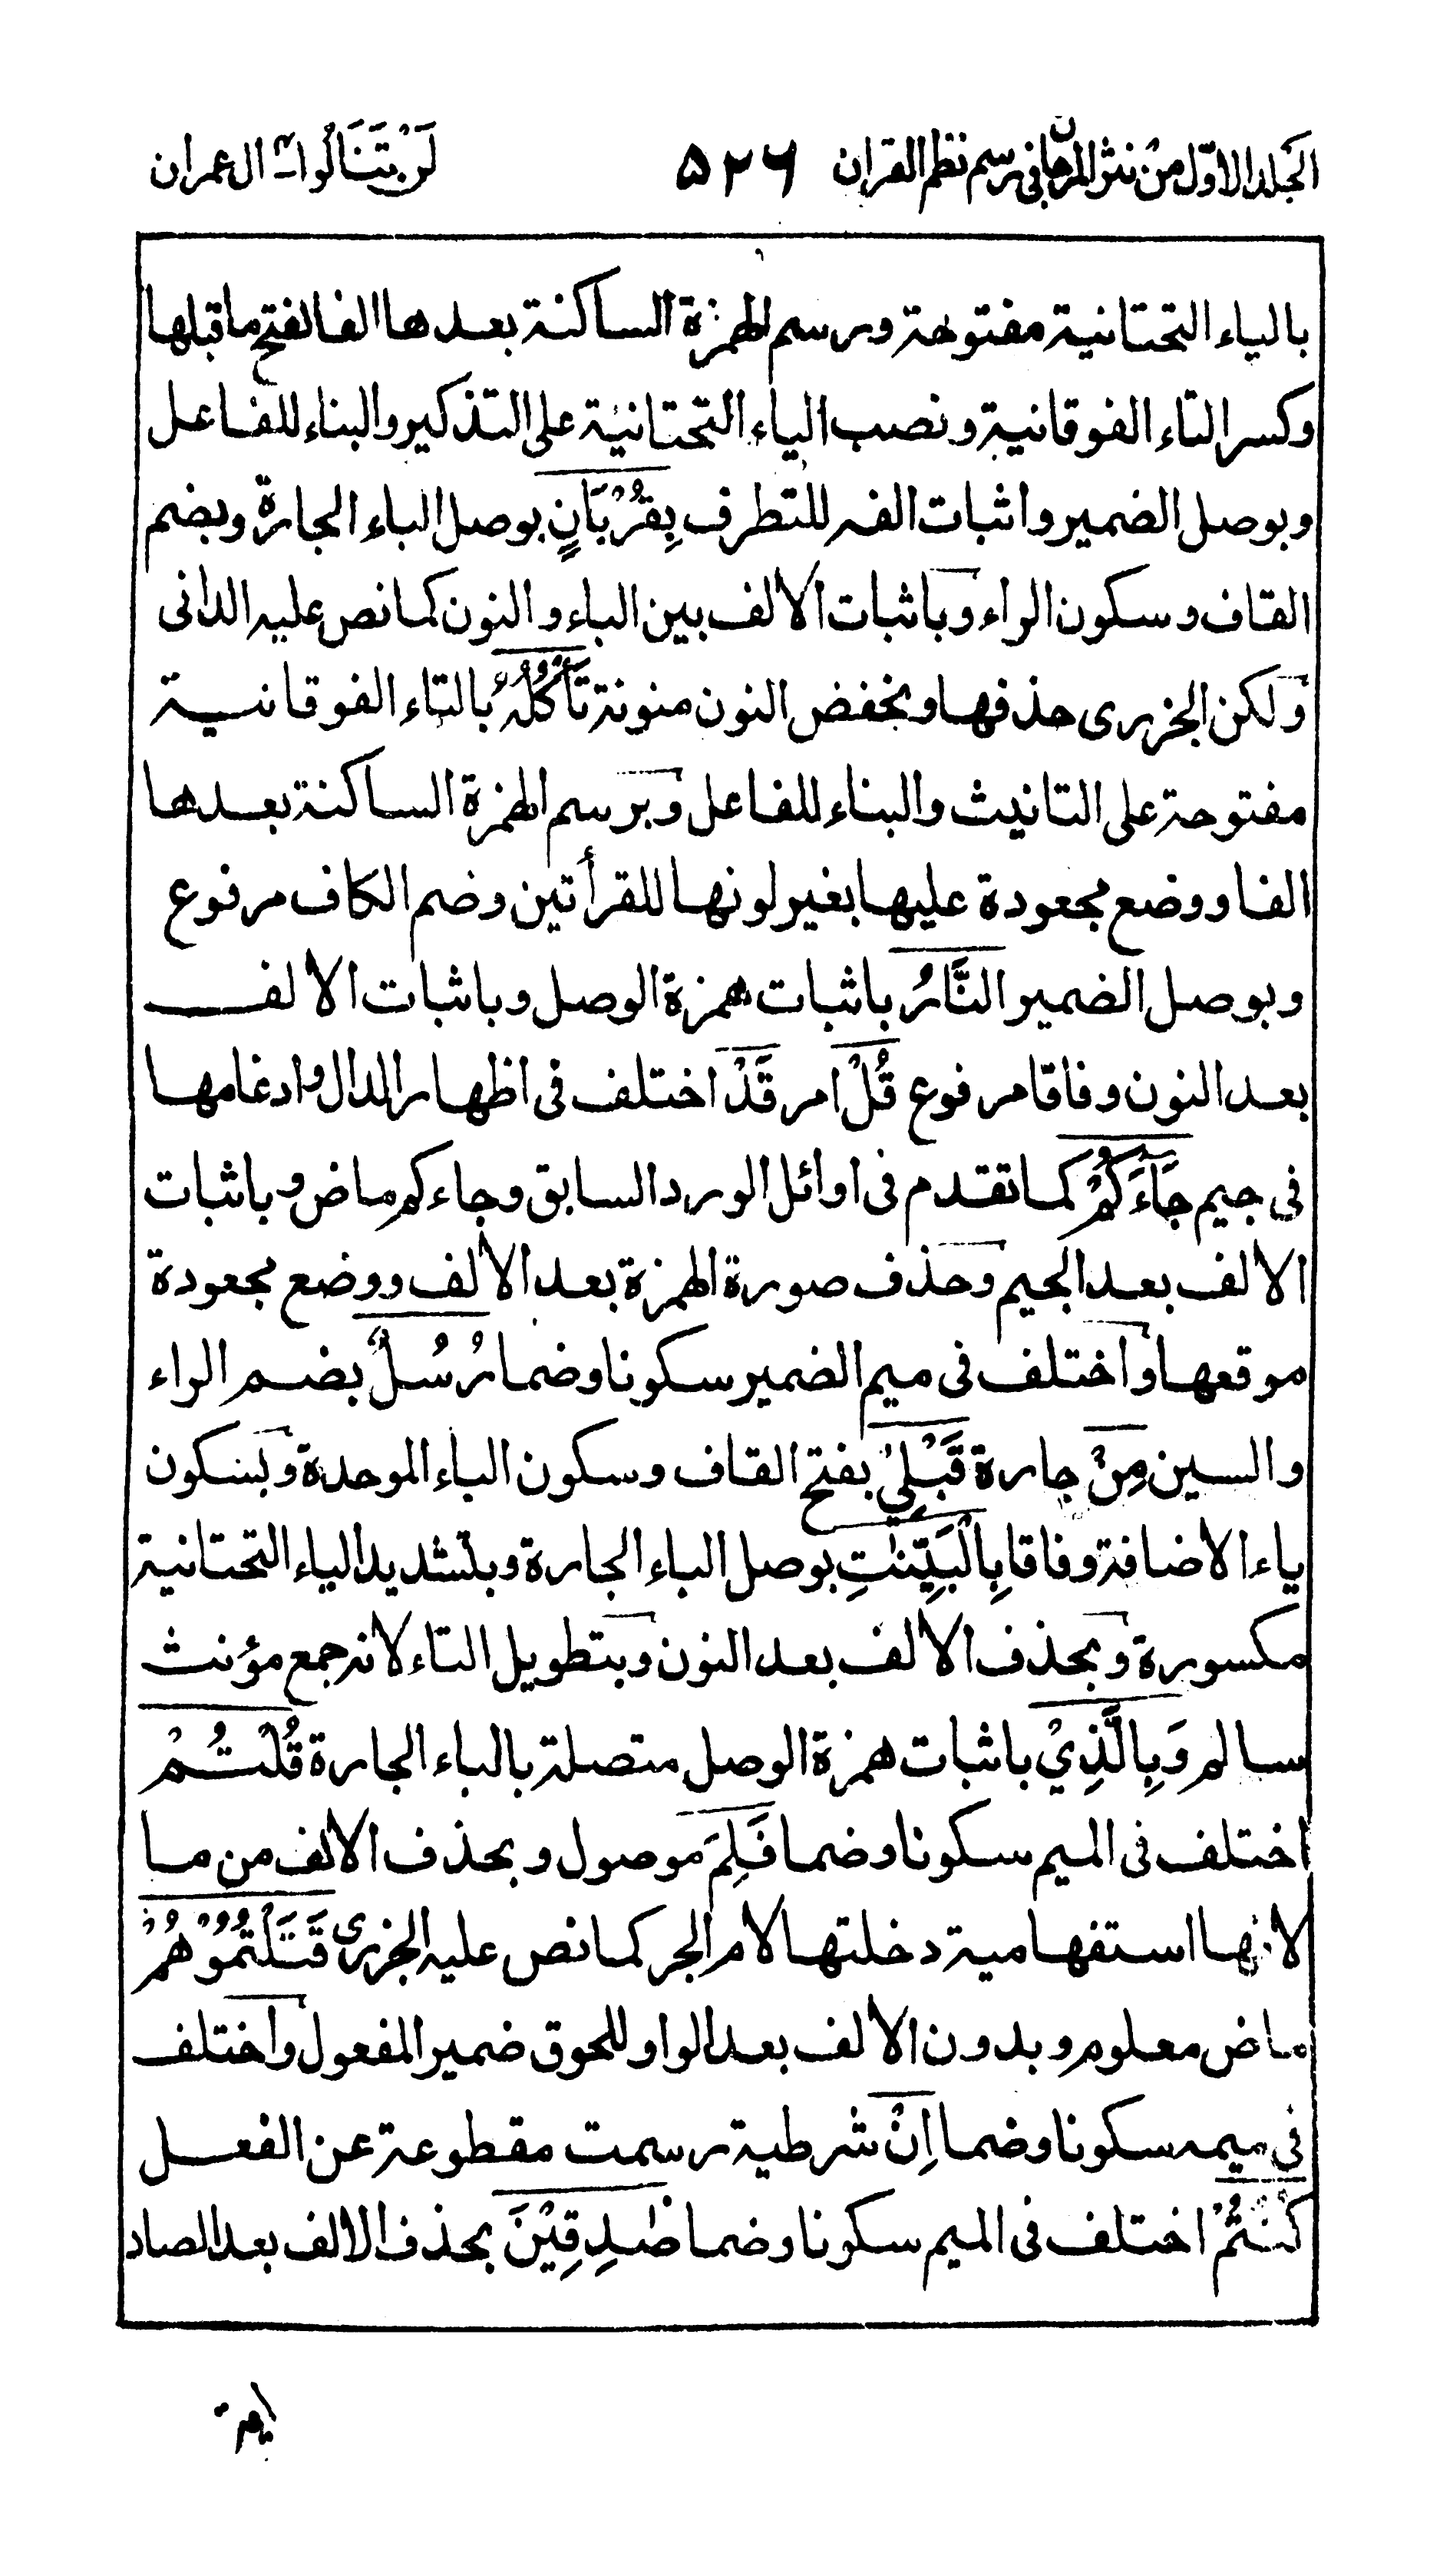 الجلد الاوّل من نثر المرجان فى رسم نظم القران ۵۲۶ لَنْ تَنَالُوا ۴ ال عمران
بالياء التحتانية مفتوحة وبرسم الهمزة الساكنة بعدها الفا لفتح ما قبلها
وكسر التاء الفوقانية ونصب الياء التحتانية على التذكير والبناء للفاعل
وبوصل الضمير واثبات الفه للتطرف بِقُرْبَانٍ بوصل الباء الجارة وبضم
القاف وسكون الراء وباثبات الالف بين الباء والنون كما نص عليه الدانى
ولكن الجزرى حذفها وبخفض النون منونة تَأْكُلُهُ بالتاء الفوقانية
مفتوحة على التانيث والبناء للفاعل وبرسم الهمزة الساكنة بعدها
الفا ووضع مجعودة عليها بغير لونها للقرأتين وضم الكاف مرفوع
وبوصل الضمير النَّارُ باثبات همزة الوصل وباثبات الالف
بعد النون وفاقا مرفوع قُلْ امر قَدْ اختلف فى اظهار الدال وادغامها
فى جيم جَآءَكُمْ كما تقدم فى اوائل الورد السابق وجاءكم ماض وباثبات
الالف بعد الجيم وحذف صورة الهمزة بعد الالف ووضع مجعودة
موقعها واختلف فى ميم الضمير سكونا وضما رُسُلٌ بضم الراء
والسين مِنْ جارة قَبْلِيْ بفتح القاف وسكون الباء الموحدة وبسكون
ياء الاضافة وفاقا بِالْبَيِّنٰتِ بوصل الباء الجارة وبتشديد الياء التحتانية
مكسورة وبحذف الالف بعد النون وبتطويل التاء لانه جمع مؤنث
سالم وَبِالَّذِيْ باثبات همزة الوصل متصلة بالباء الجارة قُلْتُمْ
اختلف فى الميم سكونا وضما فَلِمَ موصول وبحذف الالف من ما
لانها استفهامية دخلتها لام الجر كما نص عليه الجزرى قَتَلْتُمُوْهُمْ
ماض معلوم وبدون الالف بعد الواو للحوق ضمير المفعول واختلف
فى ميمه سكونا وضما اِنْ شرطية رسمت مقطوعة عن الفعل
كُنْتُمْ اختلف فى الميم سكونا وضما صٰدِقِيْنَ بحذف الالف بعد الصاد